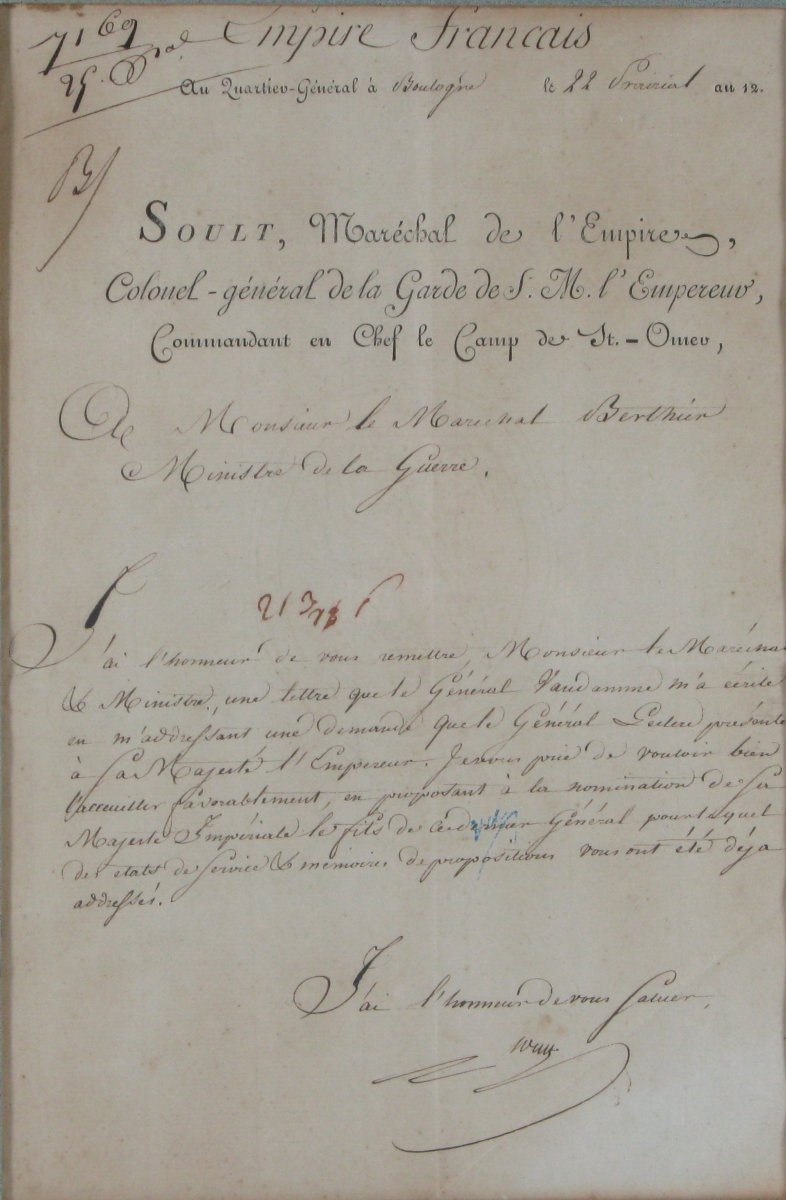 7169
Empire Francais
25.
Au Quartier-Général à Boulogne le 22 Prairial an 12.
B/
SOULT, Maréchal de l'Empire,
Colonel-général de la Garde de S. M. l'Empereur,
Commandant en Chef le Camp de St.-Omer,
A Monsieur le Marechal Berthier
Ministre de la Guerre.
J'ai l'honneur de vous remettre, Monsieur le Maréchal
& Ministre, une lettre que le Général Vandamme m'a écrite
en m'addressant une demande que le Général Leclerc présente
à Sa Majesté l'Empereur. Je vous prie de vouloir bien
l'acceuillir favorablement, en proposant à la nomination de Sa
Majesté Impériale le fils de ce dernier Général pour lequel
des états de service & mémoires de propositions vous ont été déja
addressés.
J'ai l'honneur de vous saluer.
Soult